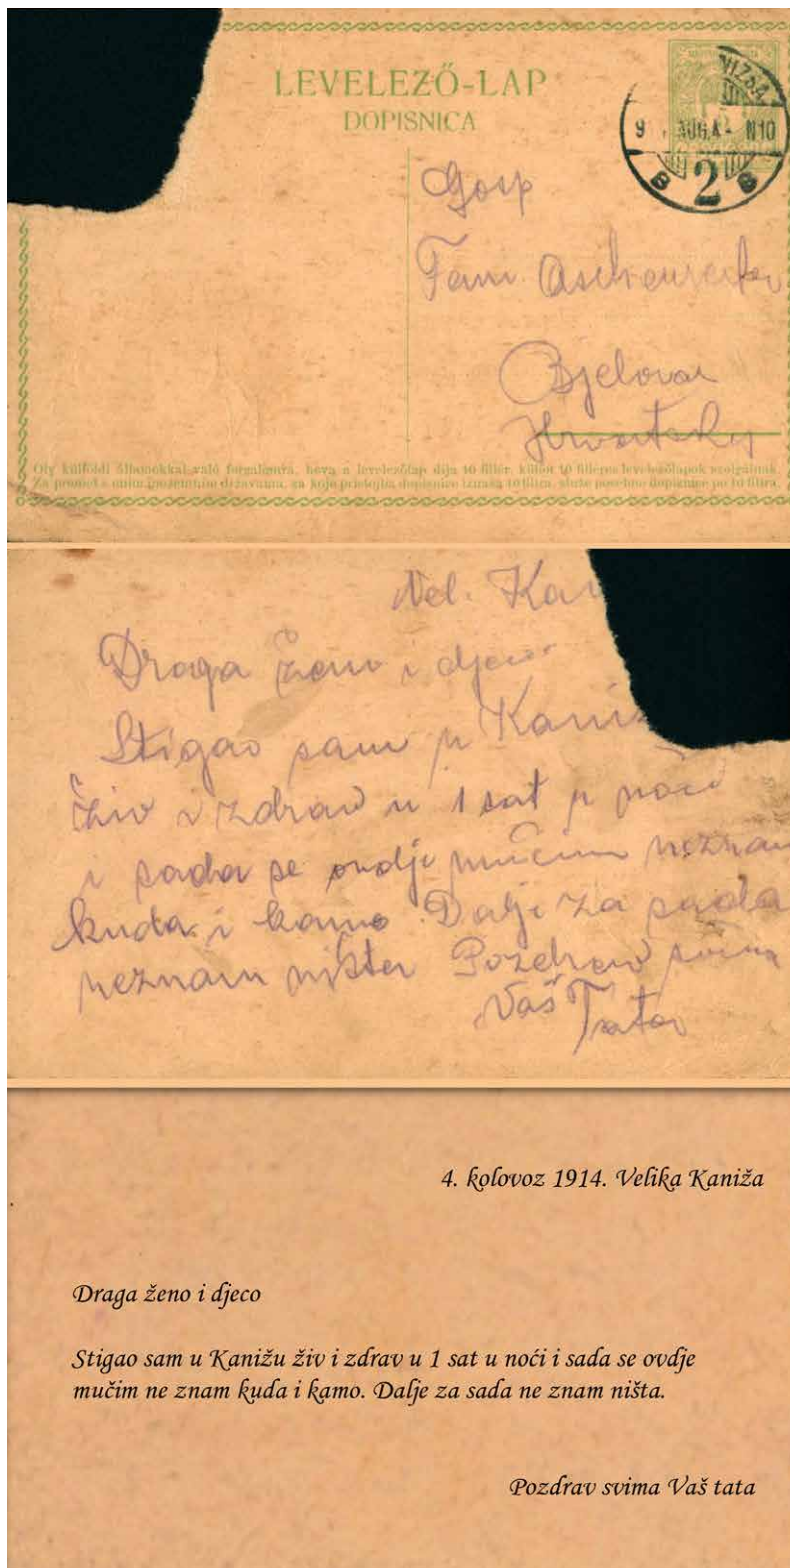 LEVELEZŐ-LAP
DOPISNICA
NIZSA
9 AUG.4- N10
B 2 B
Gosp
Fani
Bjelovar
Hrvatsky
Oly külföldi államokkal való forgalomra, hova a levelezőlap díja 10 fillér, külföt 10 filléres levelezőlapok szolgálnak.
Za promet s onim inozemnim državama, za koje pristojba dopisnice iznaša 10 filira, služe posebne dopisnice po 10 filira.
Vel. Kan
Draga ženo i djeco
Stigao sam u Kaniž
živ i zdrav u 1 sat u noći
i sada se ovdje mučim neznam
kuda i kamo Dalje za sada
neznam ništa Pozdrav svima
Vaš Tata
4. kolovoz 1914. Velika Kaniža
Draga ženo i djeco
Stigao sam u Kanižu živ i zdrav u 1 sat u noći i sada se ovdje
mučim ne znam kuda i kamo. Dalje za sada ne znam ništa.
Pozdrav svima Vaš tata